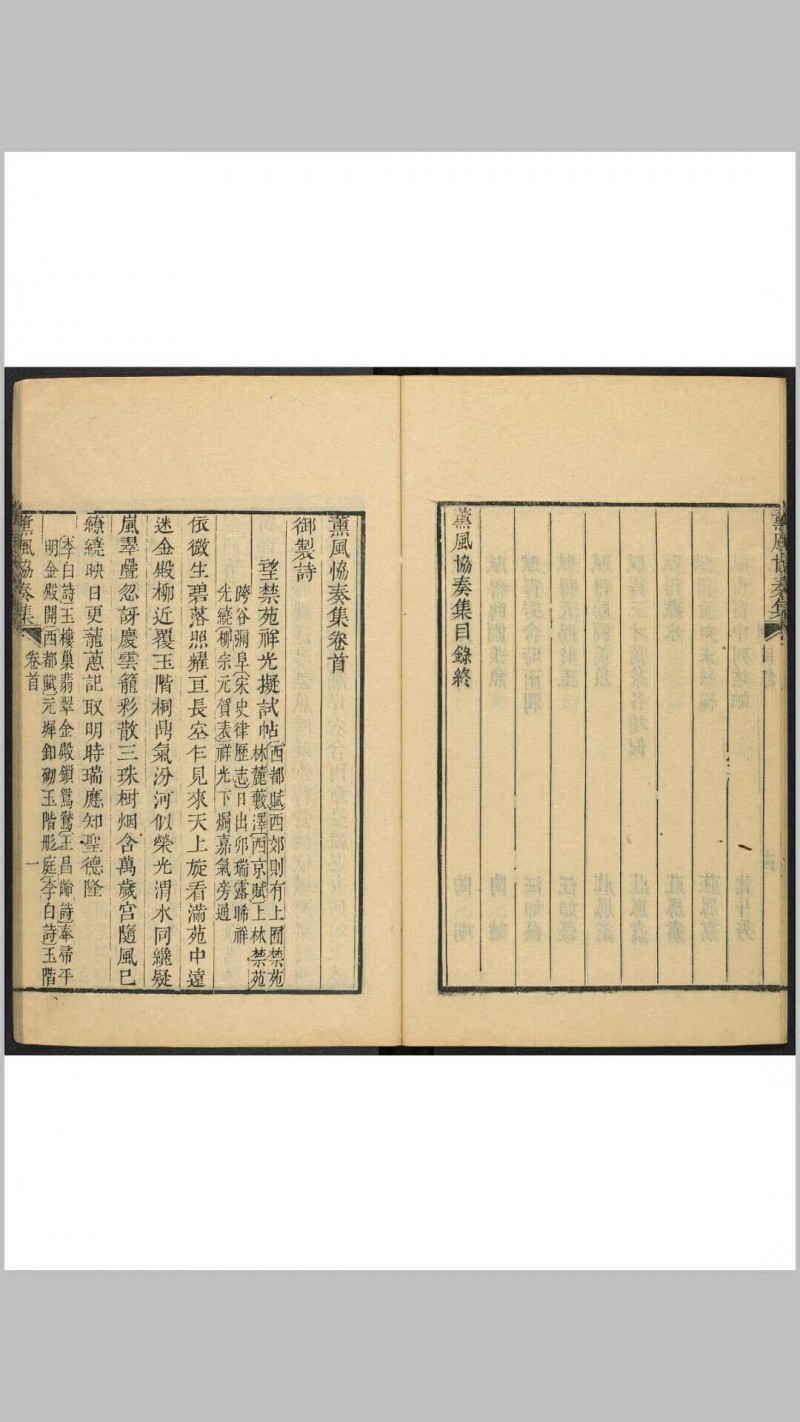 薰風協奏集
薰風協奏集目錄終
薰風協奏集卷首
御製詩
望禁苑祥光擬試帖
西都賦西郊則有上囿禁苑
林麓藪澤西京賦上林禁苑
跨谷彌阜宋史律歷志日出卯瑞露晞祥
光繞柳宗元賀表祥光下燭嘉氣旁通
依微生碧落照耀亘長空乍見來天上旋看滿苑中遠
迷金殿柳近覆玉階桐鼎氣汾河似榮光渭水同繞疑
嵐翠疊忽訝慶雲籠彩散三珠樹烟含萬歲宮隨風已
繚繞映日更蘢蔥記取明時瑞應知聖德隆
李白詩玉樓巢翡翠金殿鎖鴛鴦王昌齡詩奉帚平
明金殿開西都賦元墀釦砌玉階彤庭李白詩玉階
薰風協奏集
卷首
一